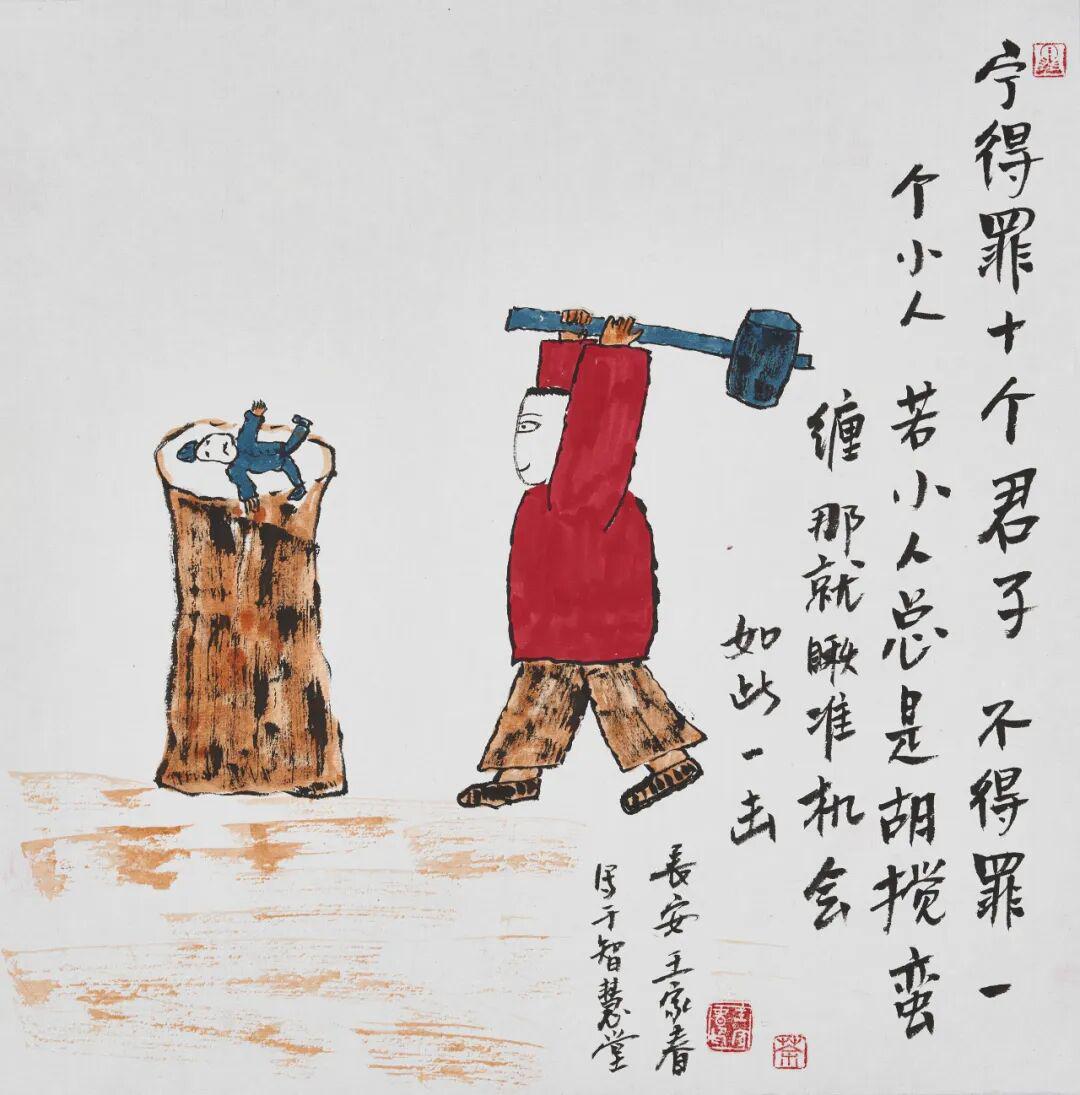 宁得罪十个君子 不得罪一
个小人 若小人总是胡搅蛮
缠 那就瞅准机会
如此一击
長安王家春
写于智慧堂